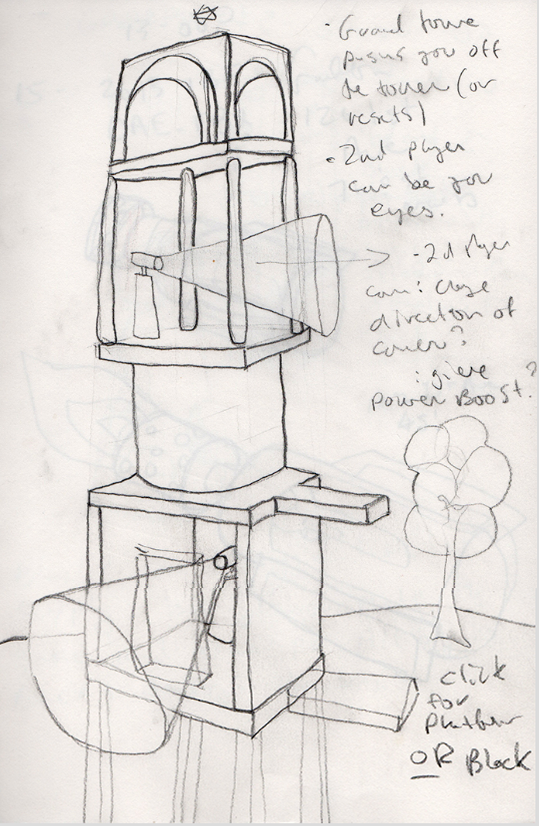 pushes you off
the tower (or
resets)
• 2nd player
can be your
eyes.
- 2nd Player
can:
direction of
camera?
: give
Power Boost?
click
for
Platform
OR Block